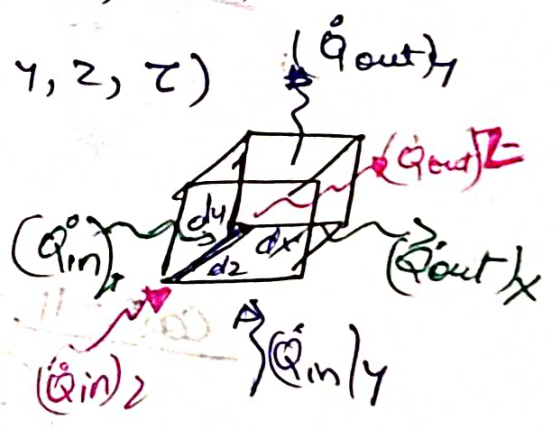 (Q̇out)y
y, z, τ)
(Q̇out)z
(Q̇in)x
dy
dx
dz
(Q̇out)x
(Q̇in)z
(Q̇in)y